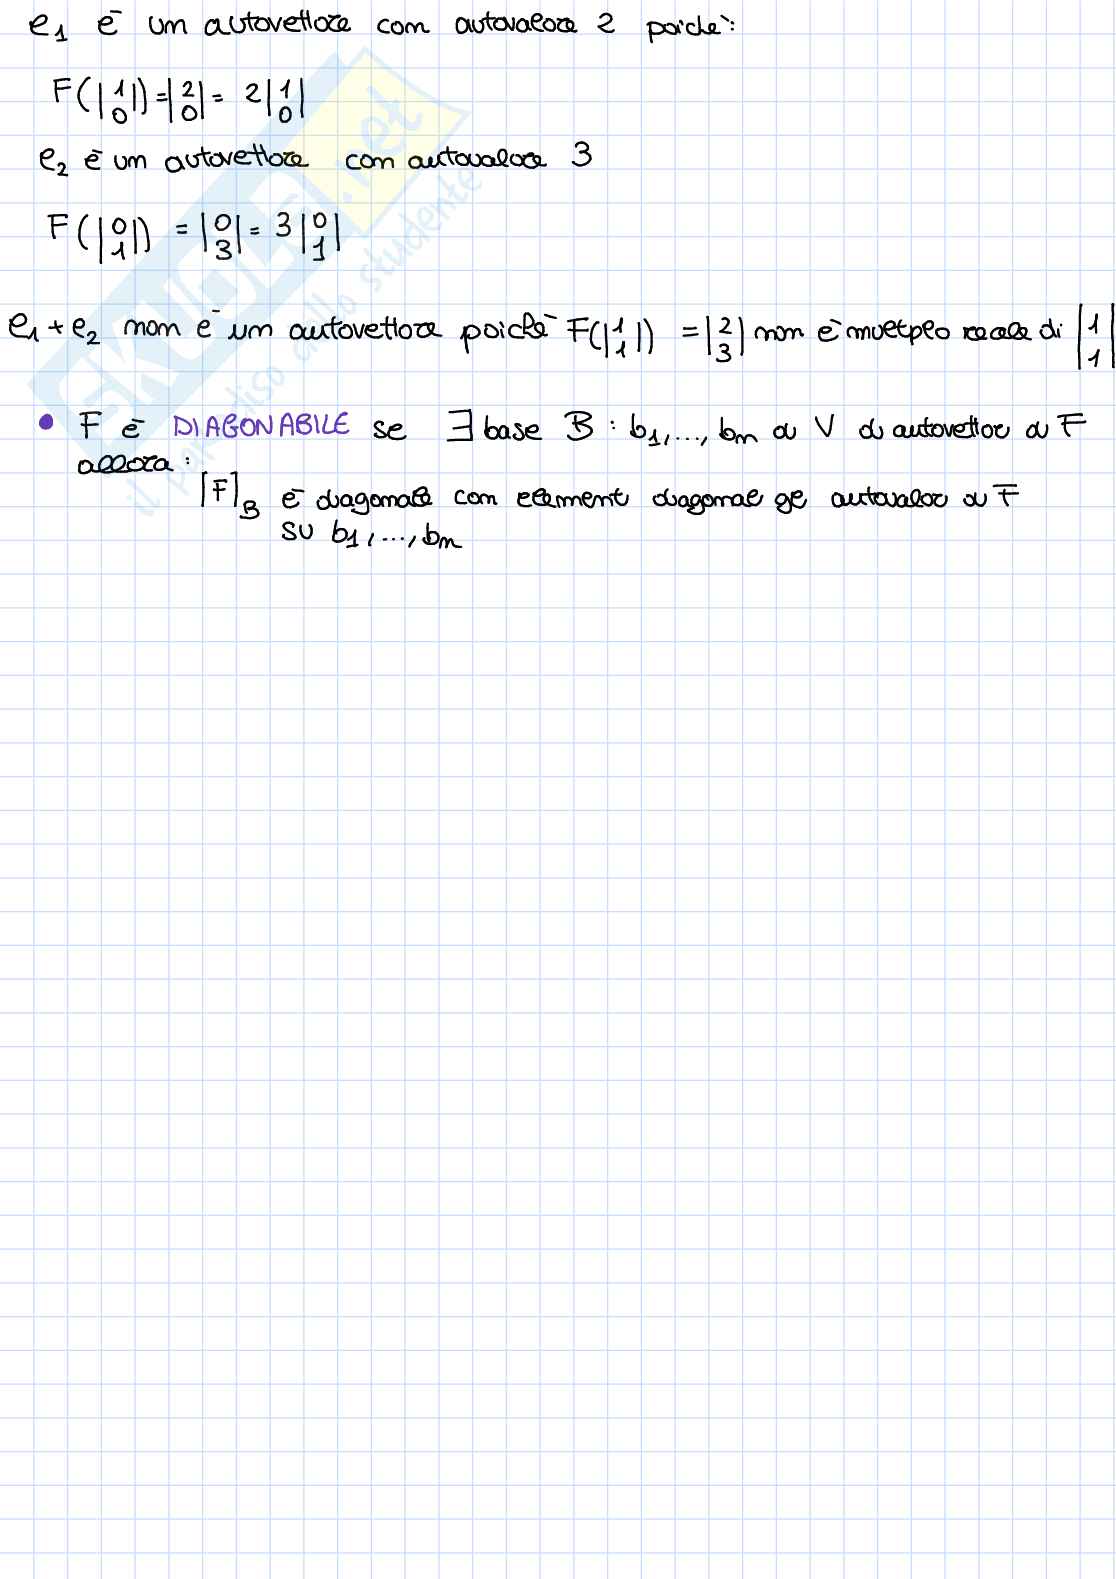 e₁ è un autovettore con autovalore 2 poichè:
F(|1 0|) = |2 0| = 2|1 0|
e₂ è un autovettore con autovalore 3
F(|0 1|) = |0 3| = 3|0 1|
e₁ + e₂ non è un autovettore poichè F(|1 1|) = |2 3| non è multiplo reale di |1 1|
• F è DIAGONABILE se ∃ base B : b₁,...,bₙ di V di autovettori di F
allora:
[F]_B è diagonale con elementi diagonali gli autovalori di F
su b₁,...,bₙ
SKUOLA.net
il paradiso dello studente